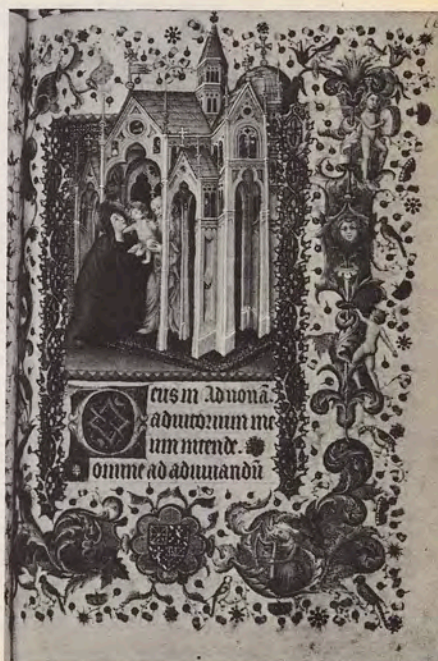 eus in Ad nonā.
adiutorium me
um intende.
omine ad adiuuandū